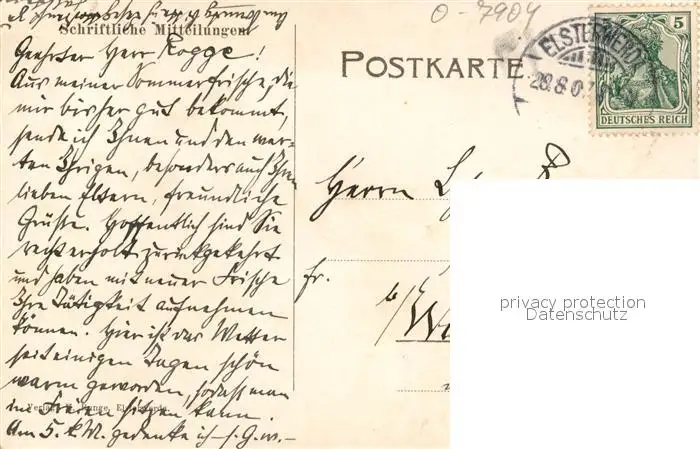 O-7904
Schriftliche Mitteilungen
POSTKARTE
ELSTERWERDA
28.8.0
5
DEUTSCHES REICH
Geehrter Herr Rogge!
Aus meiner Sommerfrische, die
mir bisher gut bekommt,
sende ich Ihnen und den wer-
ten Ihrigen, besonders auch Ihren
lieben Eltern, freundliche
Grüße. Hoffentlich sind Sie
recht erholt zurückgekehrt
und haben mit neuer Frische
Ihre Tätigkeit aufnehmen
können. Hier ist das Wetter
seit einigen Tagen schön
warm geworden, sodass man
im Freien sitzen kann.
Am 5. k. M. gedenke ich
Herrn
fr.
b/
privacy protection
Datenschutz